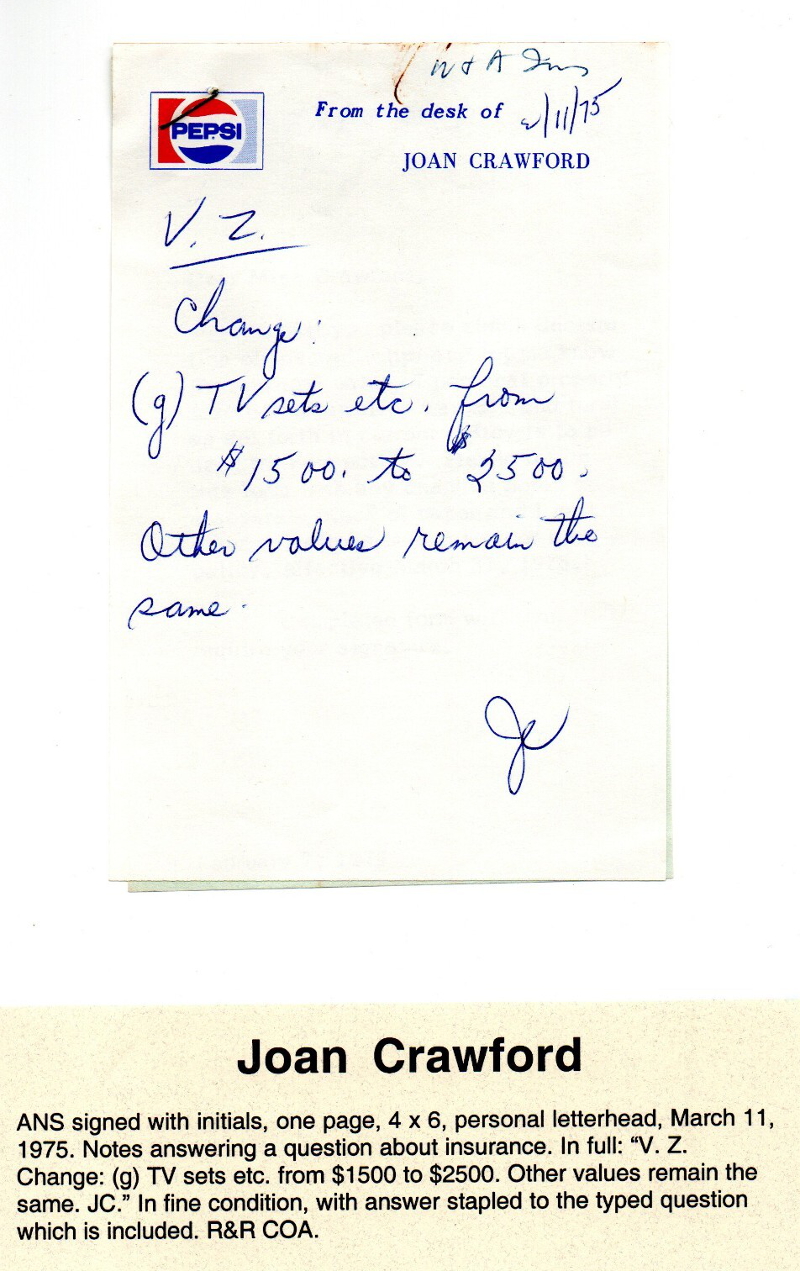 W & A Ins
PEPSI
From the desk of
/11/75
JOAN CRAWFORD
V. Z.
Change:
(g) TV sets etc. from
$1500. to $2500.
Other values remain the
same.
JC
Joan Crawford
ANS signed with initials, one page, 4 x 6, personal letterhead, March 11,
1975. Notes answering a question about insurance. In full: “V. Z.
Change: (g) TV sets etc. from $1500 to $2500. Other values remain the
same. JC.” In fine condition, with answer stapled to the typed question
which is included. R&R COA.